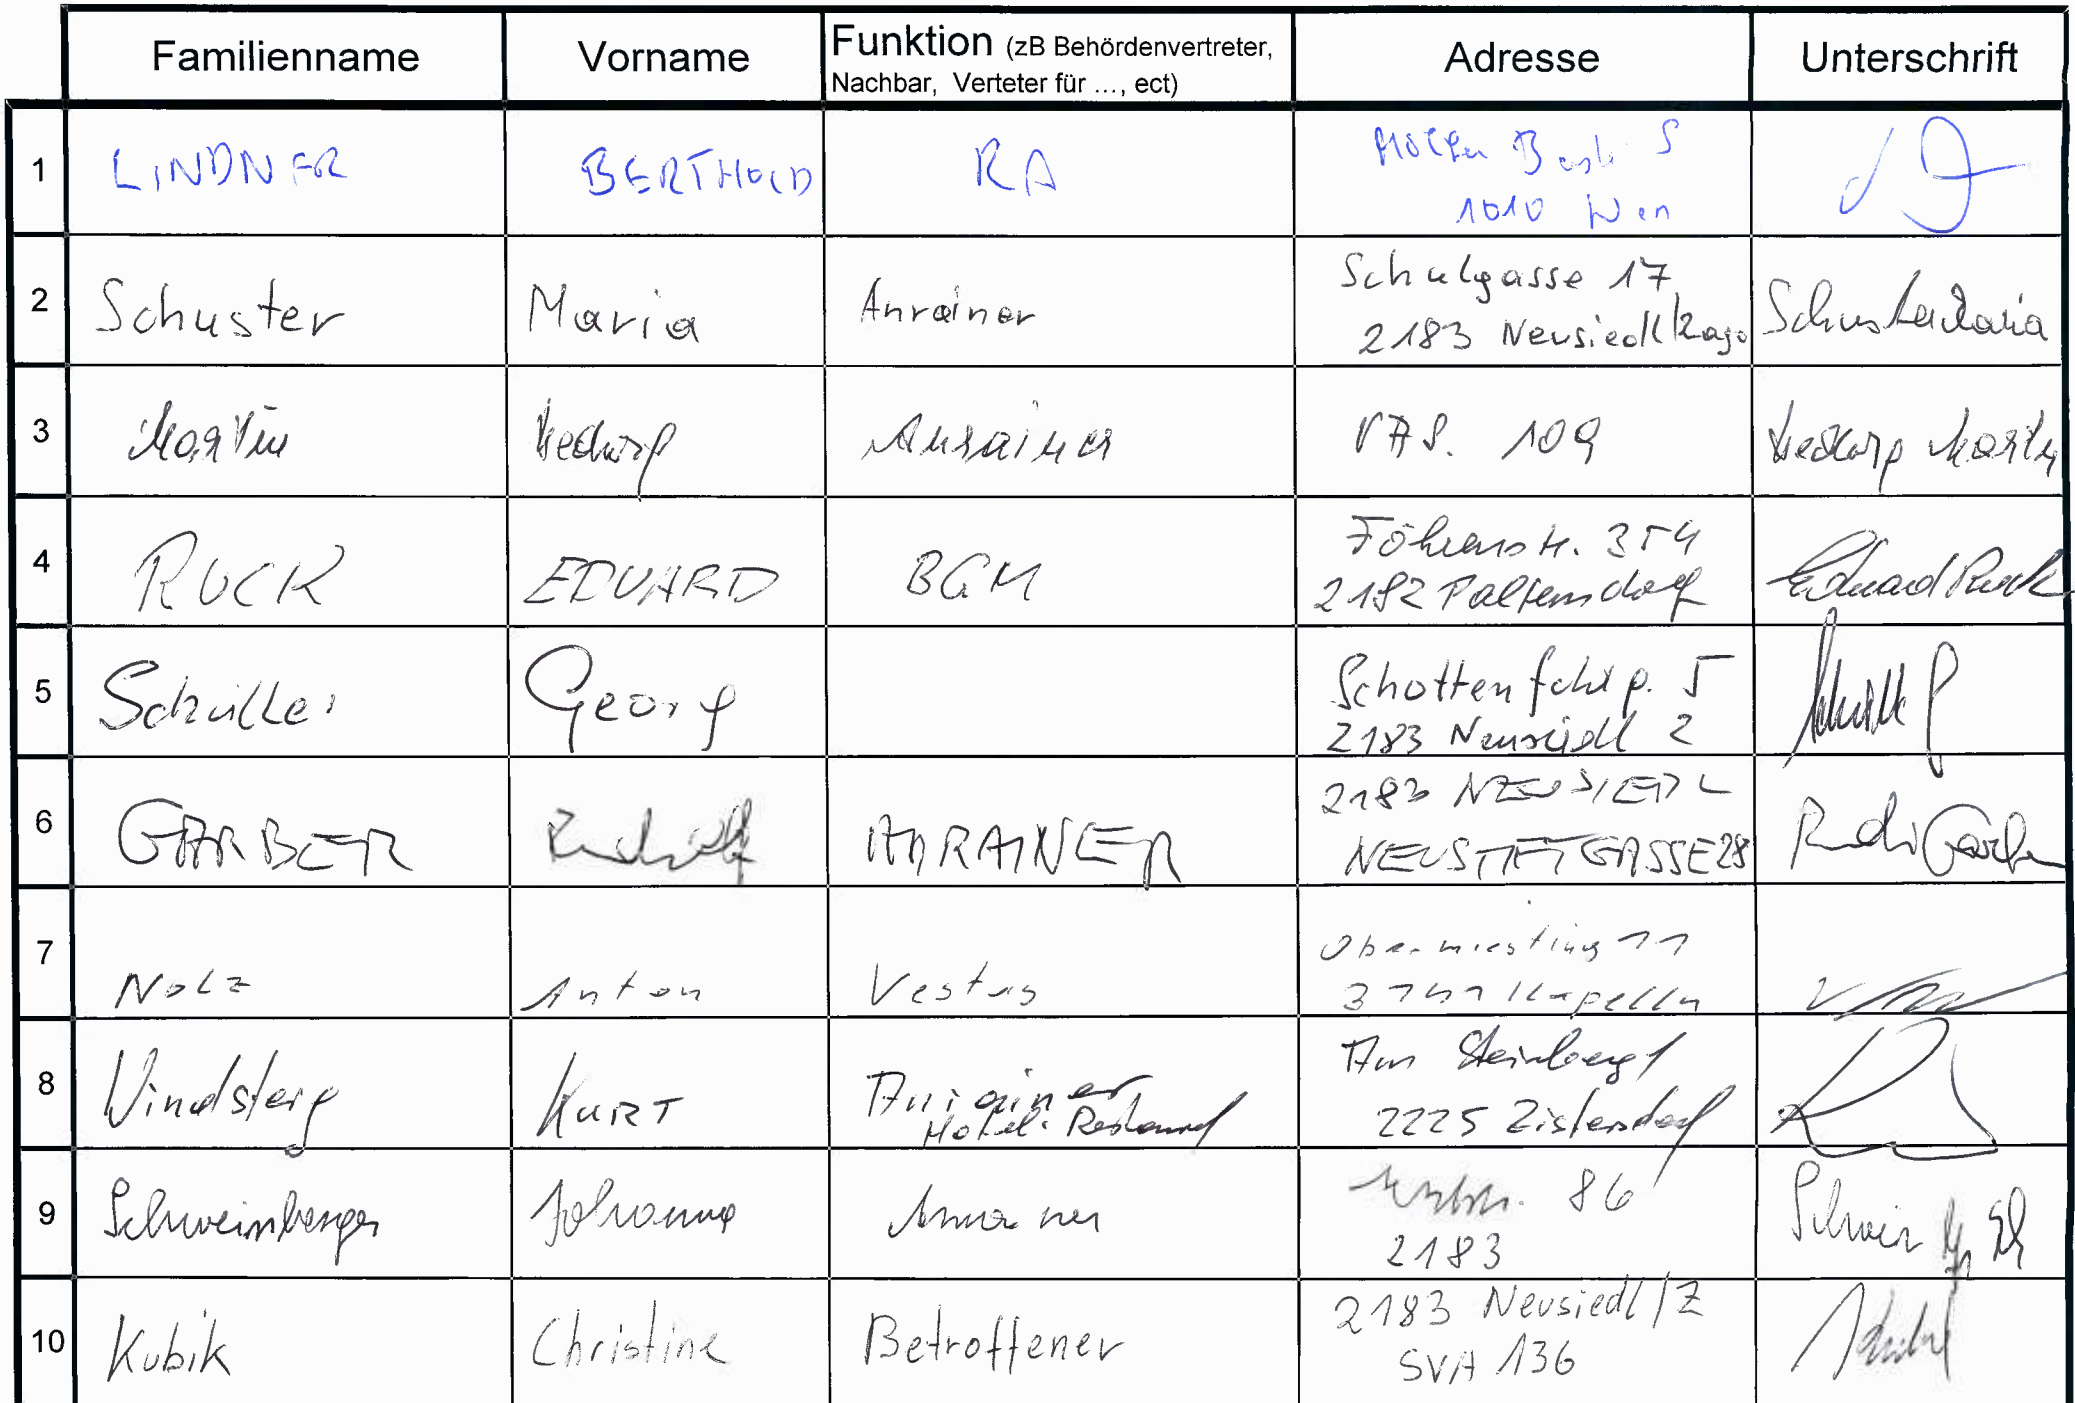 Familienname Vorname Funktion (zB Behördenvertreter, Nachbar, Verteter für ..., ect) Adresse Unterschrift
1 LINDNER BERTHOLD RA
1010 Wien
2 Schuster Maria Anrainer Schulgasse 17
2183 Neusiedl/Zaya Schuster Maria
3 Martin Hedwig Anrainer 109 Hedwig Martin
4 RUCK EDUARD BGM Föhrenstr. 354
2182 Palterndorf Eduard Ruck
5 Schüller Georg Schottenfeldg. 5
2183 Neusiedl Z
6 GARBER Rudolf ANRAINER 2183 NEUSIEDL
NEUSTIFTGASSE 28 Rudi Garber
7 Nolz Anton Vestas Obermiesting 11
3141 Kapelln
8 Windsteig KURT Anrainer
Hotel-Restaurant Am Steinberg 1
2225 Zistersdorf
9 Schweinberger Johanna Anrainer 86
2183
10 Kubik Christine Betroffener 2183 Neusiedl/Z
SVA 136